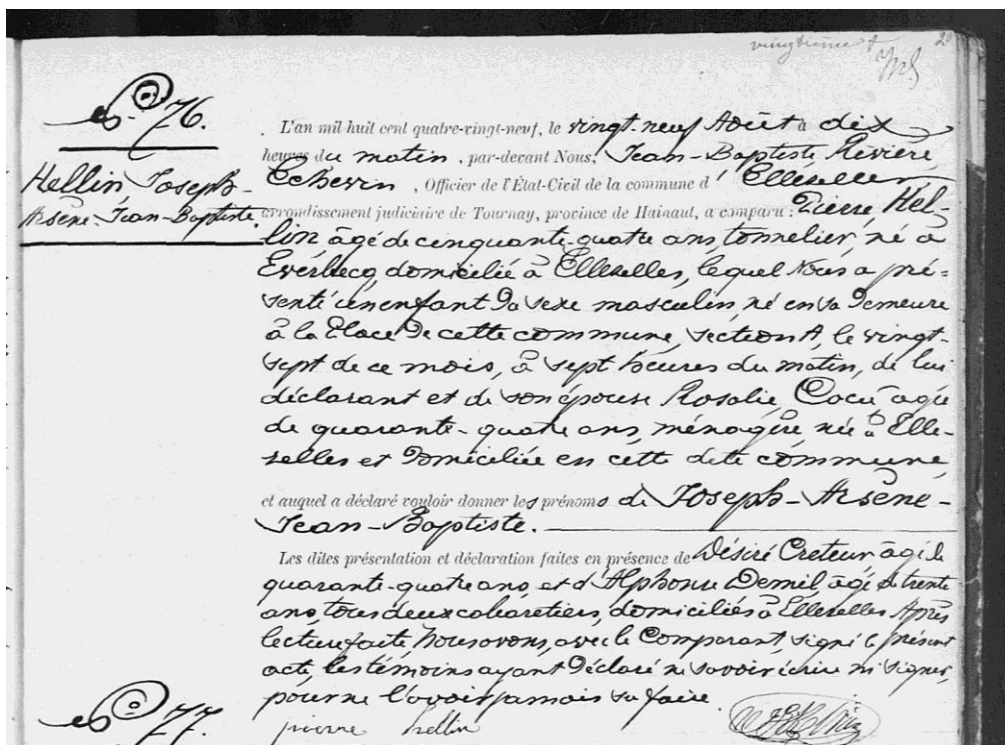 vingtième f
20
N° 76.
Hellin Joseph-
Arsène-Jean-Baptiste.
L'an mil huit cent quatre-vingt-neuf, le vingt-neuf Août à dix
heures du matin, par-devant Nous, Jean-Baptiste Rivière,
Echevin, Officier de l'État-Civil de la commune d'Ellezelles
arrondissement judiciaire de Tournay, province de Hainaut, a comparu: Pierre Hel-
lin âgé de cinquante-quatre ans, tonnelier, né à
Everbecq, domicilié à Ellezelles, lequel Nous a pré-
senté un enfant du sexe masculin, né en sa demeure
à la Place de cette commune, section A, le vingt-
sept de ce mois, à sept heures du matin, de lui
déclarant et de son épouse Rosalie Cocu âgée
de quarante-quatre ans, ménagère, née à Elle-
zelles et domiciliée en cette dite commune,
et auquel a déclaré vouloir donner les prénoms de Joseph-Arsène-
Jean-Baptiste.
Les dites présentation et déclaration faites en présence de Désiré Creteur âgé de
quarante-quatre ans, et d'Alphonse Demil, âgé de trente
ans, tous deux cabaretiers, domiciliés à Ellezelles. Après
lecture faite, Nous avons, avec le Comparant, signé le présent
acte, les témoins ayant déclaré ne savoir écrire ni signer,
pour ne l'avoir jamais su faire.
N° 77.
pierre hellin